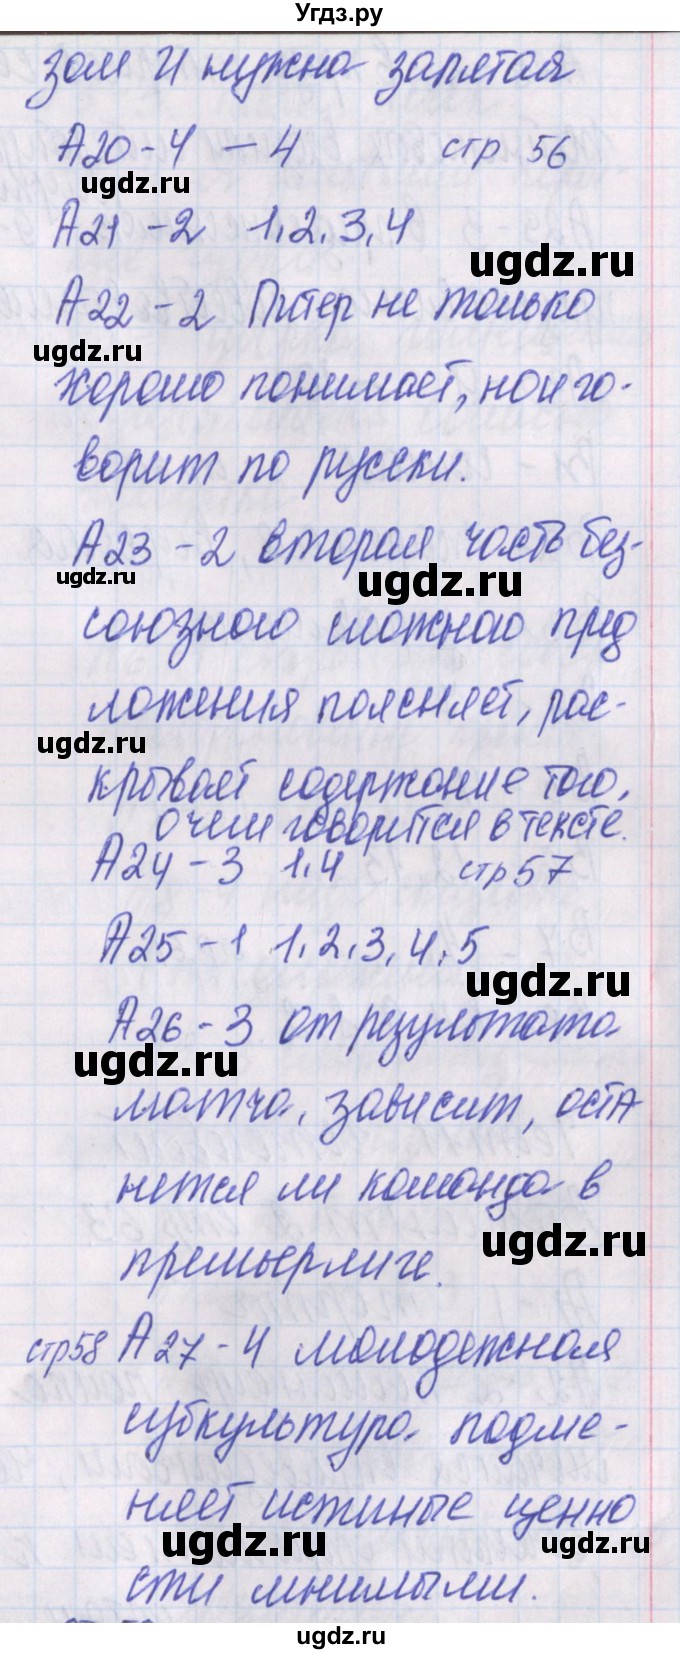 Угдз.ру
зом И нужна запятая
А20 - 4 — 4 стр 56
ugdz.ru
А21 - 2 1,2,3,4
ugdz.ru
А22 - 2 Питер не только
ugdz.ru
хорошо понимает, но и го-
ворит по русски.
А23 - 2 вторая часть без-
ugdz.ru
ugdz.ru
союзного сложного пред
ложения поясняет, рас-
ugdz.ru
крывает содержание того,
о чем говорится в тексте.
А24 - 3 1,4 стр 57
А25 - 1 1,2,3,4,5
ugdz.ru
А26 - 3 от результата
ugdz.ru
матча, зависит, оста
нется ли команда в
ugdz.ru
премьерлиге.
стр 58 А27 - 4 молодежная
субкультура подме-
няет истиные ценно
ugdz.ru
сти мнимыми.
ugdz.ru